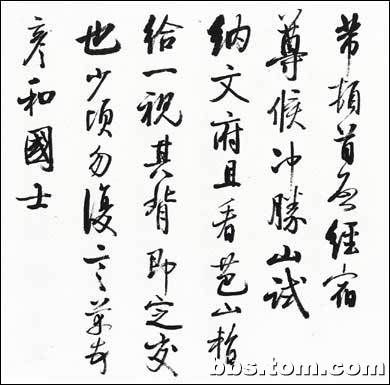 芾頓首啓經宿
尊候冲勝山試
納文府且看芭山暫
給一視其背即定交
也少頃勿復言芾頓首
彥和國士
bbs.tom.com